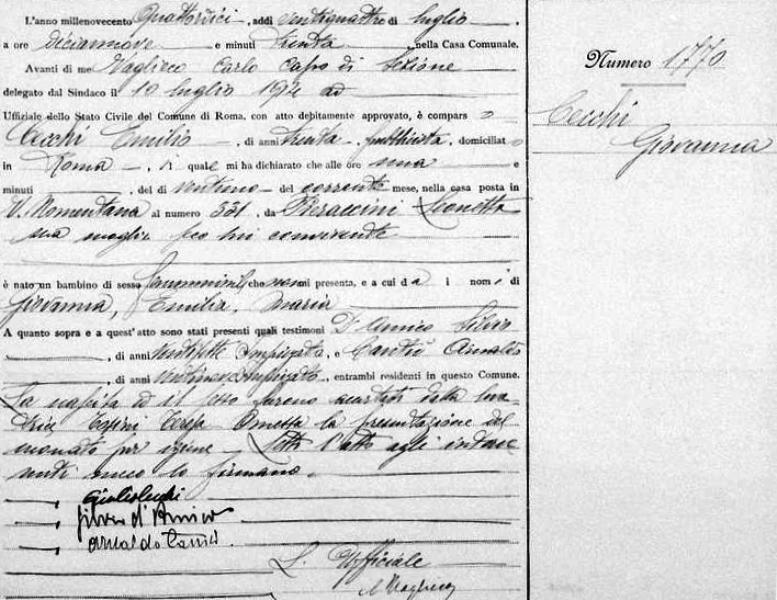 L'anno millenovecento quattordici, addi ventiquattro di luglio
a ore diciannove e minuti trenta, nella Casa Comunale.
Avanti di me Carlo Capo di Sezione
delegato dal Sindaco il 10 luglio 1914 ad
Uffiziale dello Stato Civile del Comune di Roma, con atto debitamente approvato, è compars o
Cecchi Emilio, di anni trenta, pubblicista, domiciliato
in Roma, il quale mi ha dichiarato che alle ore una e
minuti, del dì ventuno del corrente mese, nella casa posta in
V. Nomentana al numero 331, da Pieraccini Leonetta
sua moglie seco lui convivente
è nato un bambino di sesso femminile che non mi presenta, e a cui dà i nomi di
Giovanna, Emilia, Maria
A quanto sopra e a quest'atto sono stati presenti quali testimoni D'Amico Silvio
, di anni ventisette impiegato, e Cantù Arnaldo
, di anni impiegato, entrambi residenti in questo Comune.
La nascita di cui sopra accertati della leva-
trice Teresa Omessa la presentazione del
neonato per igiene Letto l'atto agli interve-
nuti meco lo firmano.
Emilio Cecchi
Silvio d'Amico
Arnaldo Cantù.
L'Uffiziale
Numero 1770
Cecchi
Giovanna